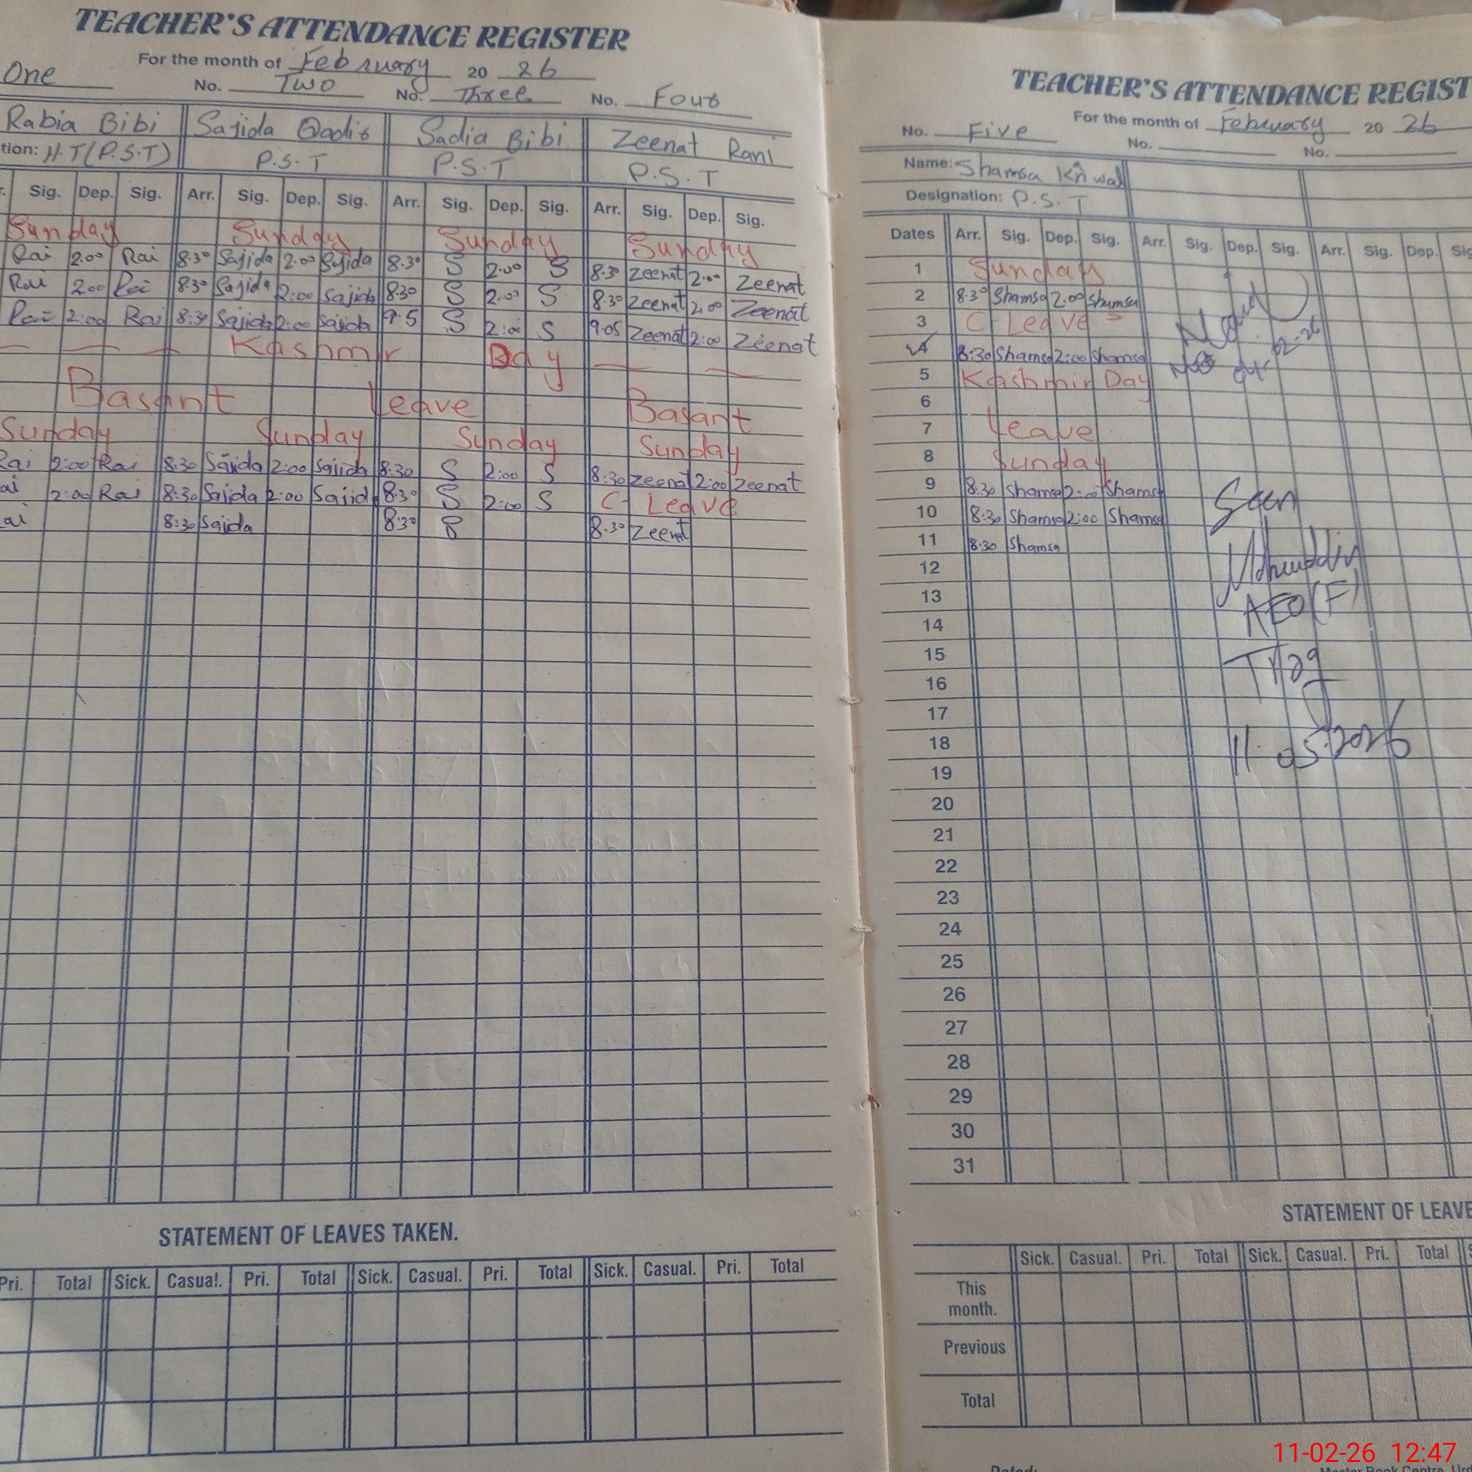 TEACHER'S ATTENDANCE REGISTER
For the month of February 20 26
One No. Two No. Three No. Four
Rabia Bibi Sajida Qadir Sadia Bibi Zeenat Rani
tion: H.T(P.S.T) P.S.T P.S.T P.S.T
Sig. Dep. Sig. Arr. Sig. Dep. Sig. Arr. Sig. Dep. Sig. Arr. Sig. Dep. Sig.
Sunday Sunday Sunday Sunday
Rai 2:00 Rai 8:30 Sajida 2:00 Sajida 8:30 S 2:00 S 8:30 Zeenat 2:00 Zeenat
Rai 2:00 Rai 8:30 Sajida 2:00 Sajida 8:30 S 2:00 S 8:30 Zeenat 2:00 Zeenat
Rai 2:00 Rai 8:30 Sajida 2:00 Sajida 9:5 S 2:00 S 9:05 Zeenat 2:00 Zeenat
Kashmir Day
Basant Leave Basant
Sunday Sunday Sunday Sunday
Rai 2:00 Rai 8:30 Sajida 2:00 Sajida 8:30 S 2:00 S 8:30 Zeenat 2:00 Zeenat
ai 2:00 Rai 8:30 Sajida 2:00 Sajid 8:30 S 2:00 S C-Leave
ai 8:30 Sajida 8:30 S 8:30 Zeenat
STATEMENT OF LEAVES TAKEN.
Pri. Total Sick. Casual. Pri. Total Sick. Casual. Pri. Total Sick. Casual. Pri. Total
TEACHER'S ATTENDANCE REGIST
For the month of February 20 26
No. Five No. No.
Name: Shamsa Knwal
Designation: P.S.T
Dates Arr. Sig. Dep. Sig. Arr. Sig. Dep. Sig. Arr. Sig. Dep. Sig
1 Sunday
2 8:30 Shamsa 2:00 Shamsa
3 C-Leave
4 8:30 Shamsa 2:00 Shamsa
5 Kashmir Day
6
7 Leave
8 Sunday
9 8:30 Shamsa 2:00 Shamsa
10 8:30 Shamsa 2:00 Shamsa
11 8:30 Shamsa
12
13
14
15
16
17
18
19
20
21
22
23
24
25
26
27
28
29
30
31
Seen
AEO(F)
11.05.2026
STATEMENT OF LEAVE
Sick. Casual. Pri. Total Sick. Casual. Pri. Total S
This
month.
Previous
Total
Dated:
11-02-26 12:47